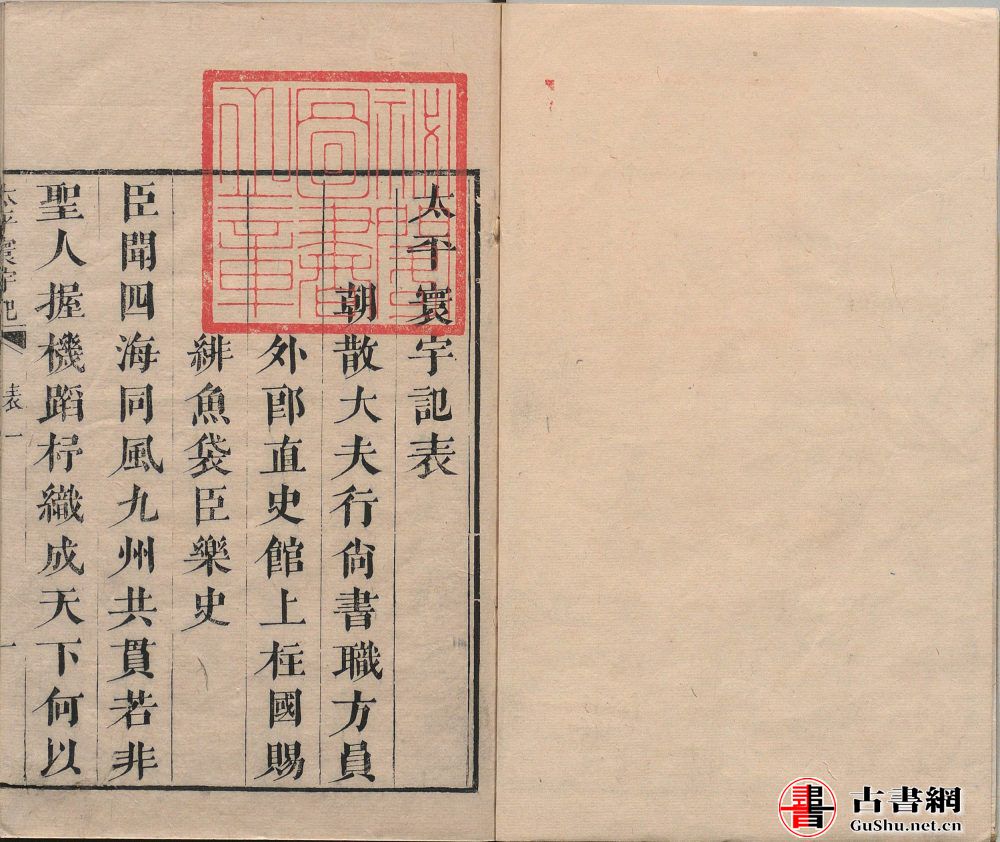 太平寰宇記表
朝散大夫行尚書職方員
外郎直史館上柱國賜
緋魚袋臣樂史
臣聞四海同風九州共貫若非
聖人握機蹈杼織成天下何以
太平寰宇記 表 一
秘閣
圖書
之章
書
古書網
GuShu.net.cn